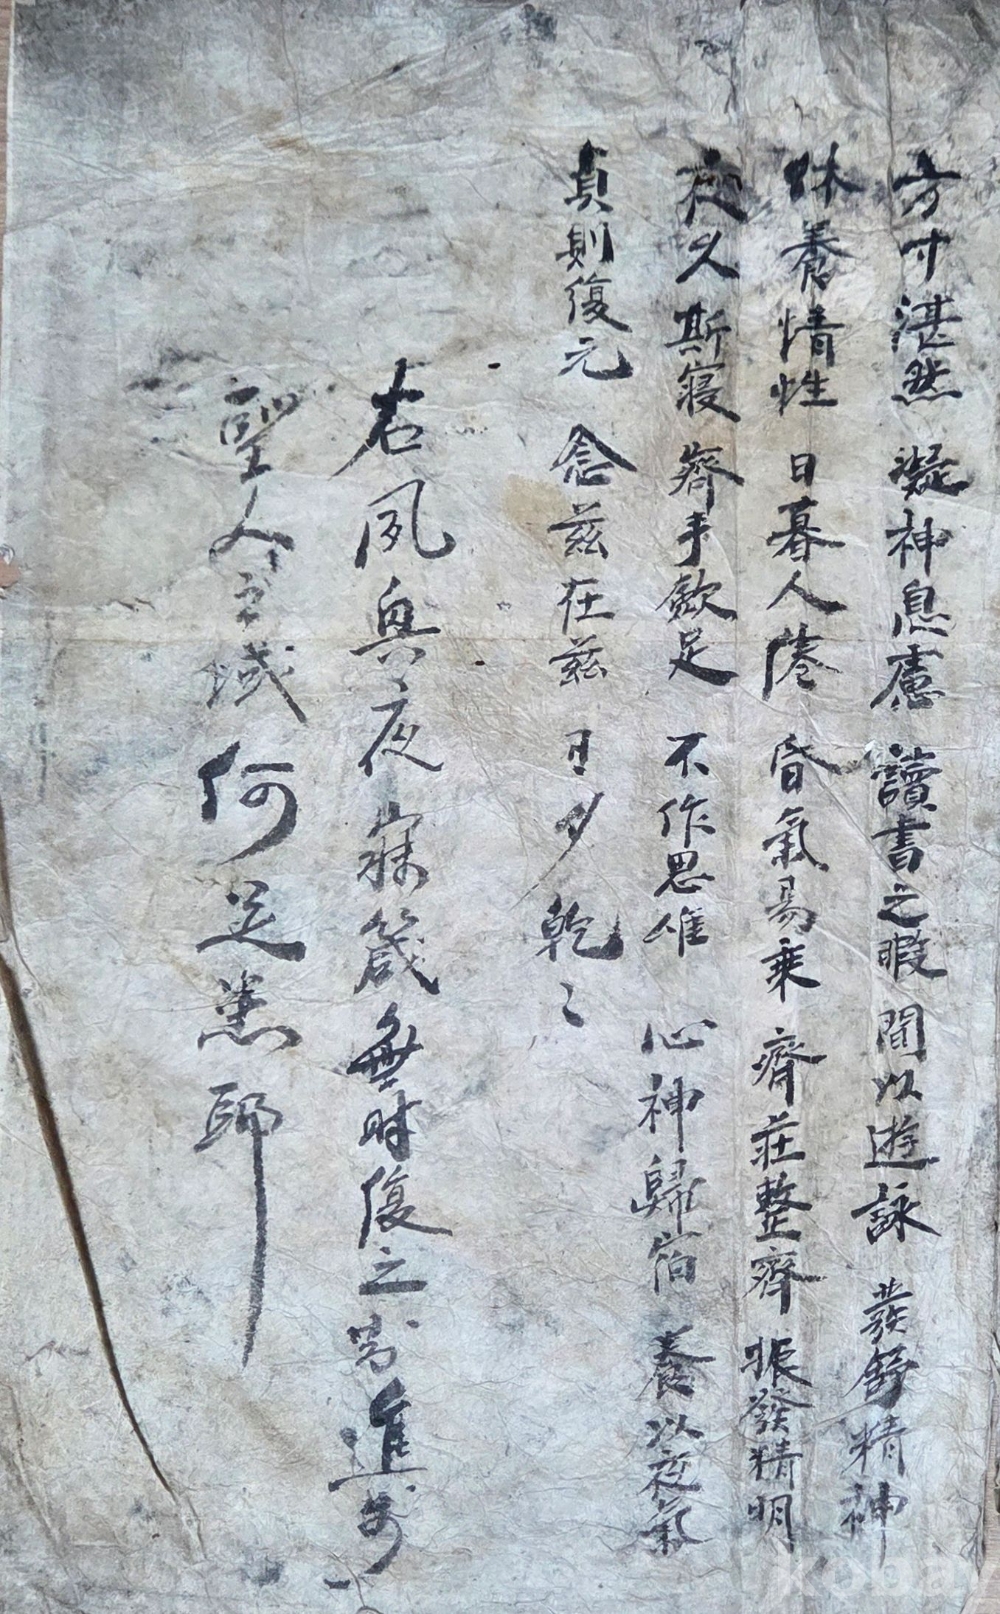 方寸湛然 凝神息慮 讀書之暇 間以遊詠 發舒精神
休養情性 日暮人倦 昏氣易乘 齊莊整齊 振發精明
夜久斯寢 齊手斂足 不作思惟 心神歸宿 養以夜氣
貞則復元 念茲在茲 日夕乾〻
右夙興夜寐箴無時復之 進於
聖人之域何足羨耶
koba